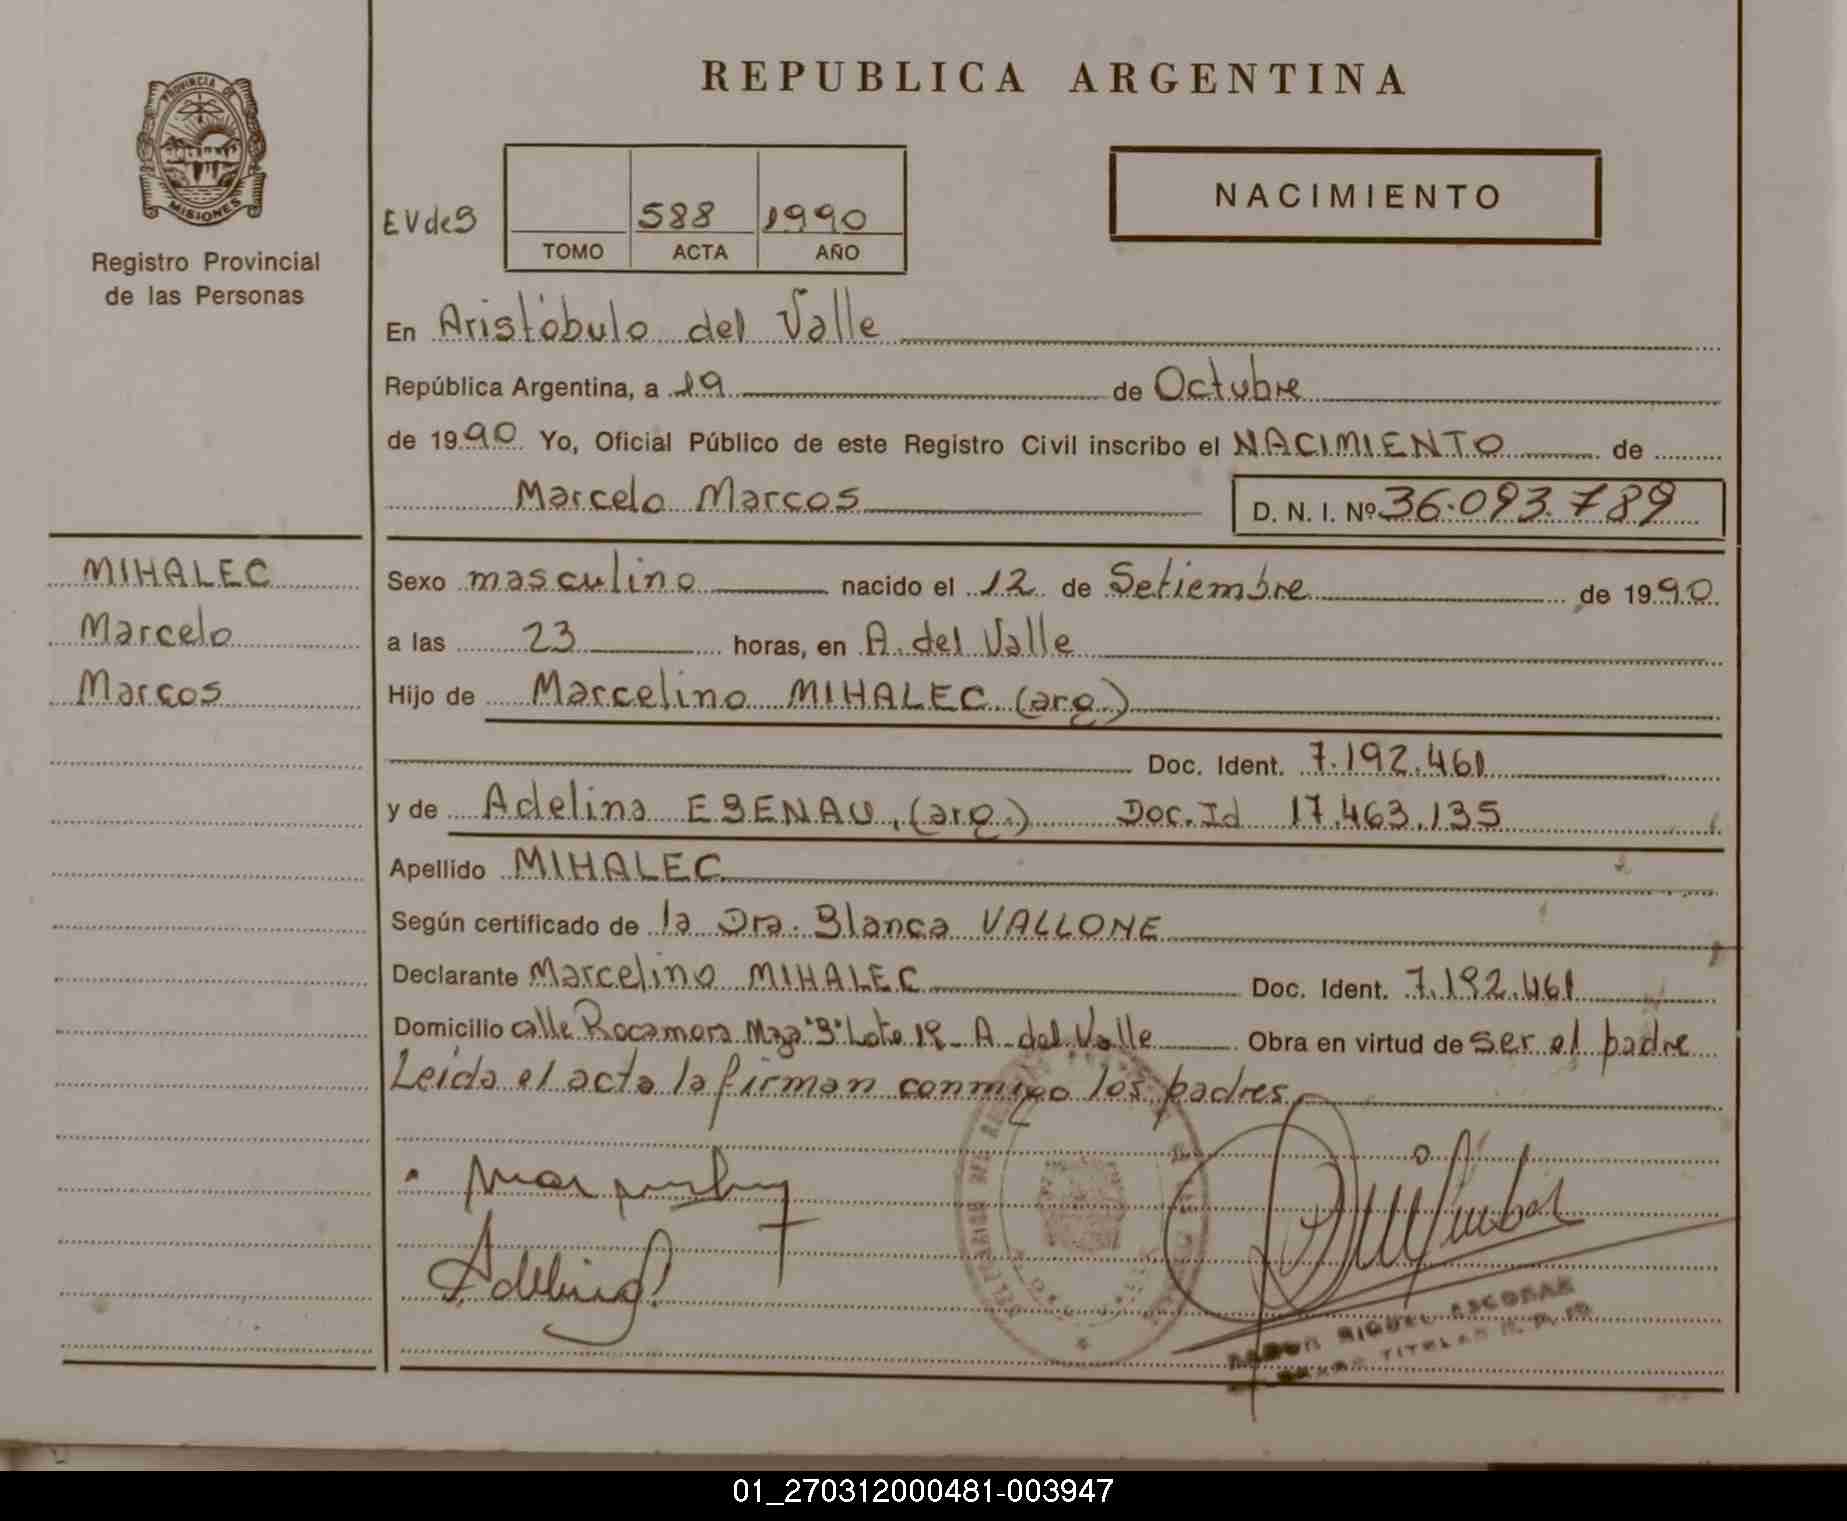 REPUBLICA ARGENTINA
PROVINCIA DE
MISIONES
Registro Provincial
de las Personas
NACIMIENTO
EVdeS
588 1990
TOMO ACTA AÑO
En Aristóbulo del Valle
República Argentina, a 19 de Octubre
de 1990 Yo, Oficial Público de este Registro Civil inscribo el NACIMIENTO de
Marcelo Marcos D. N. I. Nº 36.093.789
MIHALEC
Marcelo
Marcos
Sexo masculino nacido el 12 de Setiembre de 1990
a las 23 horas, en A. del Valle
Hijo de Marcelino MIHALEC (arg.)
Doc. Ident. 7.192.461
y de Adelina ESENAU, (arg.) Doc. Id 17.463.135
Apellido MIHALEC
Según certificado de la Dra. Blanca VALLONE
Declarante Marcelino MIHALEC Doc. Ident. 7.192.461
Domicilio calle Rocamora Mza "B" Lote 19 - A. del Valle Obra en virtud de ser el padre
Leída el acta la firman conmigo los padres
Adelina
MIGUEL ESCOBAR
TITULAR
01_270312000481-003947